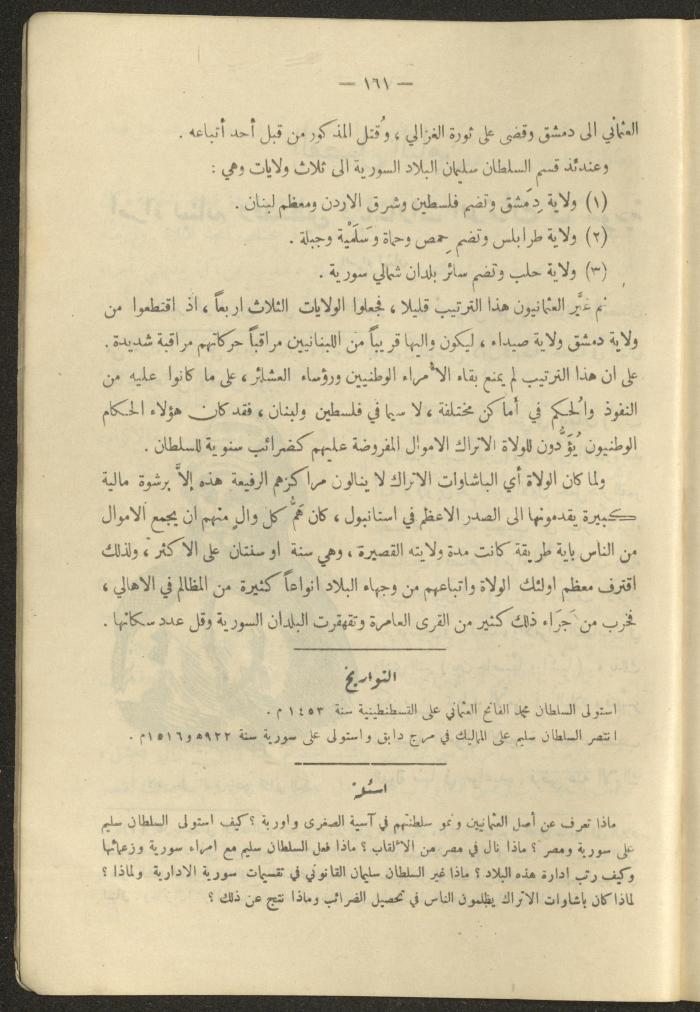 — ١٦١ —
العثماني الى دمشق وقضى على ثورة الغزالي ، وقُتل المذكور من قبل أحد أتباعه .
وعندئذ قسم السلطان سليمان البلاد السورية الى ثلاث ولايات وهي :
(١) ولاية دِمَشق وتضم فلسطين وشرق الاردن ومعظم لبنان .
(٢) ولاية طرابلس وتضم حِمص وحماة وسَلَمْية وجبلة .
(٣) ولاية حلب وتضم سائر بلدان شمالي سورية .
ثم غيَّر العثمانيون هذا الترتيب قليلا ، فجعلوا الولايات الثلاث اربعاً ، اذ اقتطعوا من
ولاية دمشق ولاية صيداء ، ليكون واليها قريباً من اللبنانيين مراقباً حركاتهم مراقبة شديدة .
على ان هذا الترتيب لم يمنع بقاء الأمراء الوطنيين ورؤساء العشائر ، على ما كانوا عليه من
النفوذ والحكم في أماكن مختلفة ، لا سيما في فلسطين ولبنان ، فقد كان هؤلاء الحكام
الوطنيون يُؤَدُّون للولاة الاتراك الاموال المفروضة عليهم كضرائب سنوية للسلطان .
ولما كان الولاة أي الباشاوات الاتراك لا ينالون مراكزهم الرفيعة هذه إلاَّ برشوة مالية
كبيرة يقدمونها الى الصدر الاعظم في استانبول ، كان هَمُّ كل والٍ منهم ان يجمع الاموال
من الناس باية طريقة كانت مدة ولايته القصيرة ، وهي سنة او سنتان على الاكثر ، ولذلك
اقترف معظم اولئك الولاة واتباعهم من وجهاء البلاد انواعاً كثيرة من المظالم في الاهالي ،
فخرب من جَرَاء ذلك كثير من القرى العامرة وتقهقرت البلدان السورية وقل عدد سكانها .
التواريخ
استولى السلطان محمد الفاتح العثماني على القسطنطينية سنة ١٤٥٣ م .
انتصر السلطان سليم على المماليك في مرج دابق واستولى على سورية سنة ٩٢٢ﻫ و١٥١٦م .
اسئلة
ماذا تعرف عن أصل العثمانيين ونمو سلطنتهم في آسية الصغرى واوربة ؟ كيف استولى السلطان سليم
على سورية ومصر ؟ ماذا نال في مصر من الألقاب ؟ ماذا فعل السلطان سليم مع امراء سورية وزعمائها
وكيف رتب ادارة هذه البلاد ؟ ماذا غير السلطان سليمان القانوني في تقسيمات سورية الادارية ولماذا ؟
لماذا كان باشاوات الاتراك يظلمون الناس في تحصيل الضرائب وماذا نتج عن ذلك ؟